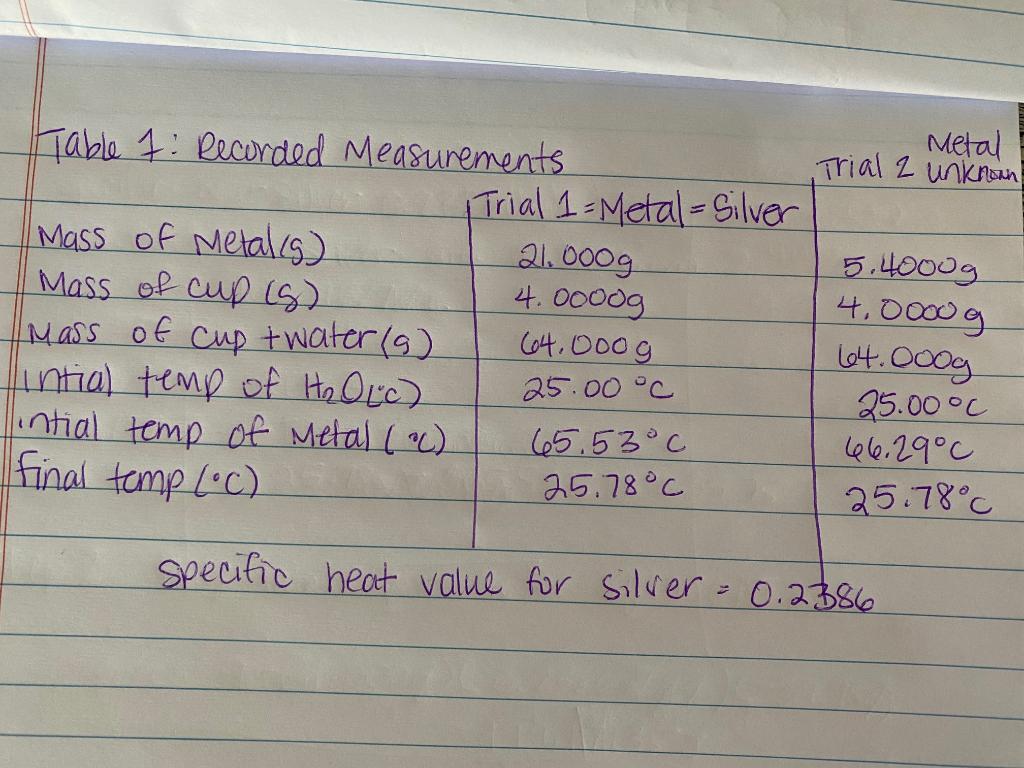 Table 1: Recorded Measurements
Trial 2 Metal unknown
Trial 1 = Metal = Silver
Mass of Metal (g) 21.000g 5.4000g
Mass of cup (g) 4.0000g 4.0000g
Mass of cup + water (g) 64.000g 64.000g
intial temp of H2O (°C) 25.00 °C 25.00 °C
intial temp of Metal (°C) 65.53°C 66.29°C
final temp (°C) 25.78°C 25.78°C
specific heat value for silver = 0.2386